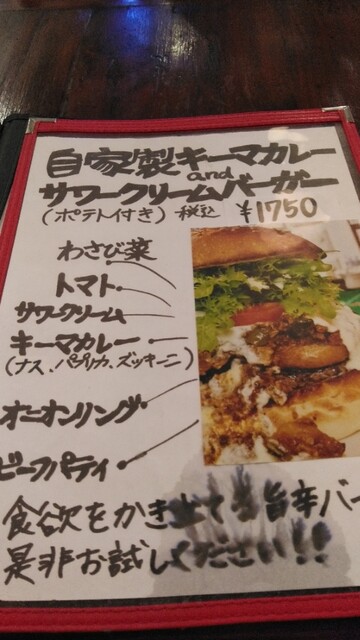 自家製キーマカレー
and
サワークリームバーガー
(ポテト付き) 税込 ¥1750
わさび菜
トマト
サワークリーム
キーマカレー
(ナス、パプリカ、ズッキーニ)
オニオンリング
ビーフパティ
食欲をかき立てる旨辛バー
是非お試しください!!